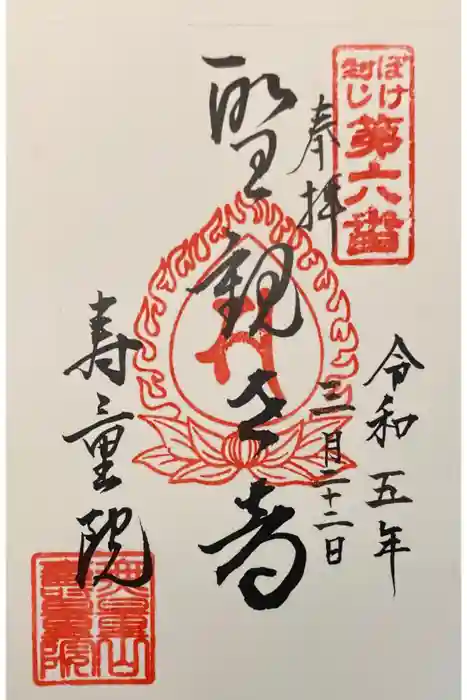 ぼけ
封じ
第六番
奉拝
令和五年
三月二十二日
聖観世音
寿童院